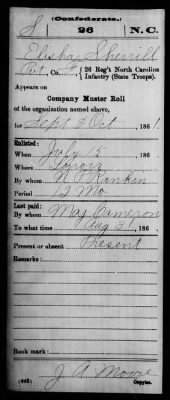 (Confederate.)
S 26 N.C.
Elisha Sherrill
Pvt, Co. 26 Reg't North Carolina
Infantry (State Troops).
Appears on
Company Muster Roll
of the organization named above,
for Sept & Oct, 1861.
Enlisted:
When July 15, 186
Where
By whom Rankin
Period 12 Mo
Last paid:
By whom Maj Cameron
To what time Aug 3, 186
Present or absent Present
Remarks:
Book mark:
J A Moore
(642) Copyist.